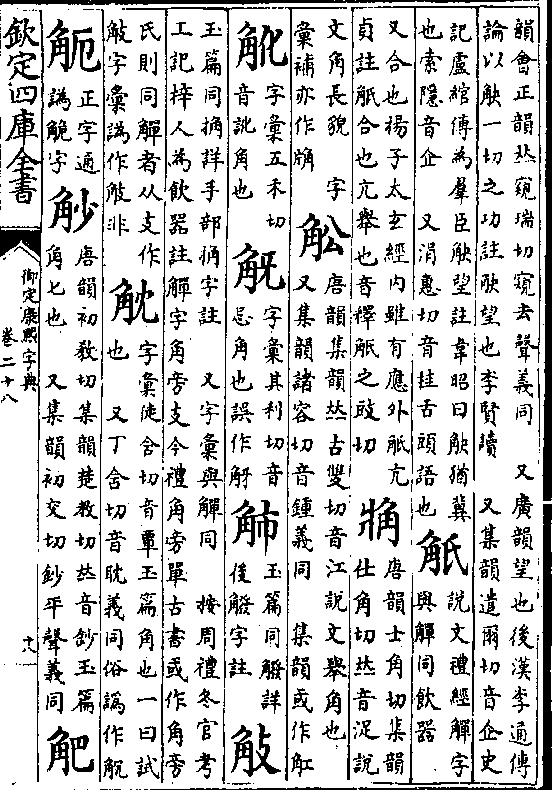 韻會正韻𠀤窺瑞切窺去聲義同 又廣韻望也後漢李通傳
論以觖一切之功註觖望也李賢讀 又集韻遣爾切音企史
記盧綰傳為羣臣觖望註韋昭曰觖猶冀
也索隱音企 又涓惠切音挂舌頭語也
觗
說文禮經觶字
與觶同飲器
又合也揚子太玄經內雖有應外觝亢
貞註觝合也亢舉也音釋觝之豉切
唐韻士角切集韻
仕角切𠀤音浞說
文角長貌 字
彙補亦作
䚗
唐韻集韻𠀤古雙切音江說文舉角也
又集韻諸容切音鍾義同 集韻或作
字彙五禾切
音訛角也
字彙其利切音
忌角也誤作
玉篇同觱詳
後觱字註
玉篇同捔詳手部捔字註 又字彙與觶同 按周禮冬官考
工記梓人為飲器註觶字角旁支今禮角旁單古書或作角旁
氏則同觶者从支作
字彙譌作 非
字彙徒含切音覃玉篇角也一曰試
也 又丁含切音耽義同俗譌作
正字通
譌 字
觘
唐韻初教切集韻楚教切𠀤音鈔玉篇
角匕也 又集韻初交切鈔平聲義同
欽定四庫全書
御定康熙字典
卷二十八